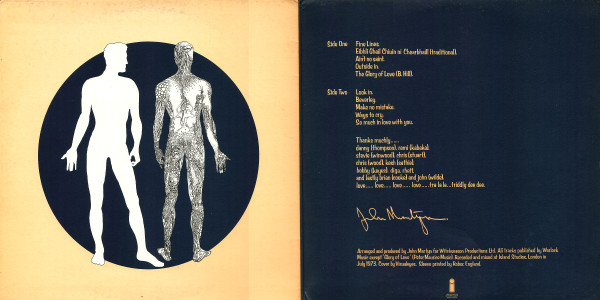 Side One
Fine Lines.
Eibhli Ghail Chiuin ni Chearbhaill (traditional).
Aint no saint.
Outside in.
The Glory of Love (B. Hill).
Side Two
Look in.
Beverley.
Make no mistake.
Ways to cry.
So much in love with you.
Thanks muchly....
danny (thompson), remi (kabaka),
stevie (winwood), chris (stuart),
chris (wood), keith (sathie),
bobby (keyes), digu, rhett,
and lastly brian (cooke) and john (wilde).
love.... love.... love.... love.... tra la la...triddly dee dee.
John Martyn
Arranged and produced by John Martyn for Witchseason Productions Ltd. All tracks published by Warlock
Music except 'Glory of Love' (Peter Maurice Music). Recorded and mixed at Island Studios, London in
July 1973. Cover by Visualeyes. Sleeve printed by Robor, England.